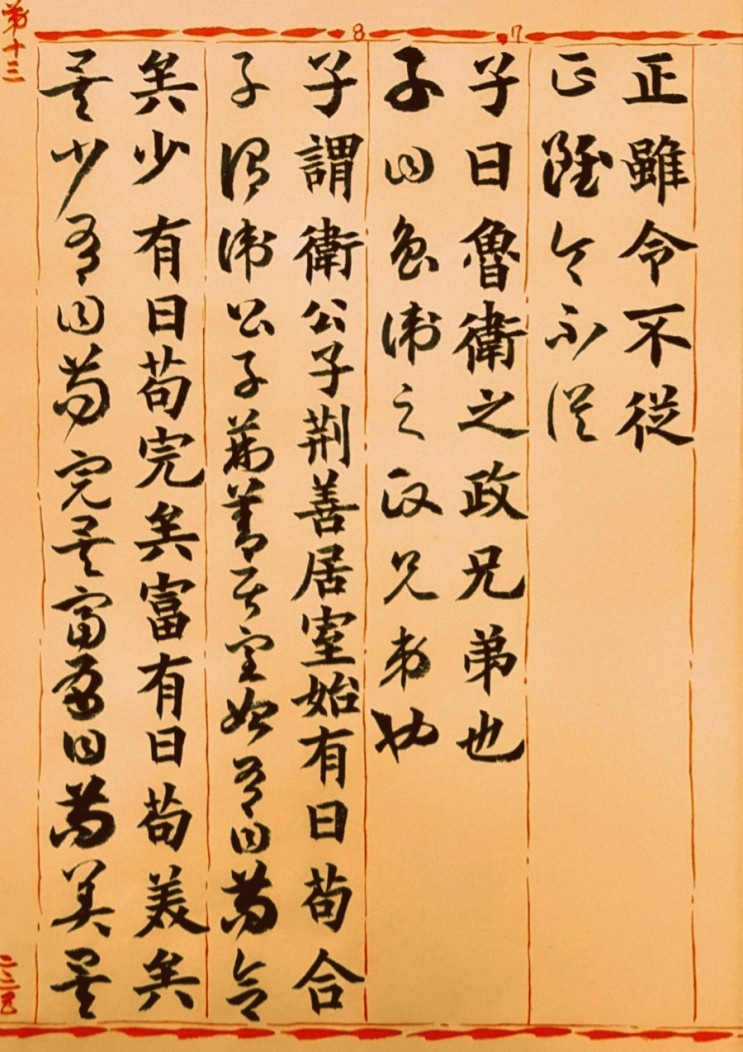 正雖令不從
正雖令不從
7
子曰魯衛之政兄弟也
子曰魯衛之政兄弟也
8
子謂衛公子荆善居室始有曰苟合
子謂衛公子荆善居室始有曰苟合
矣少有曰苟完矣富有曰苟美矣
矣少有曰苟完矣富有曰苟美矣
第十三